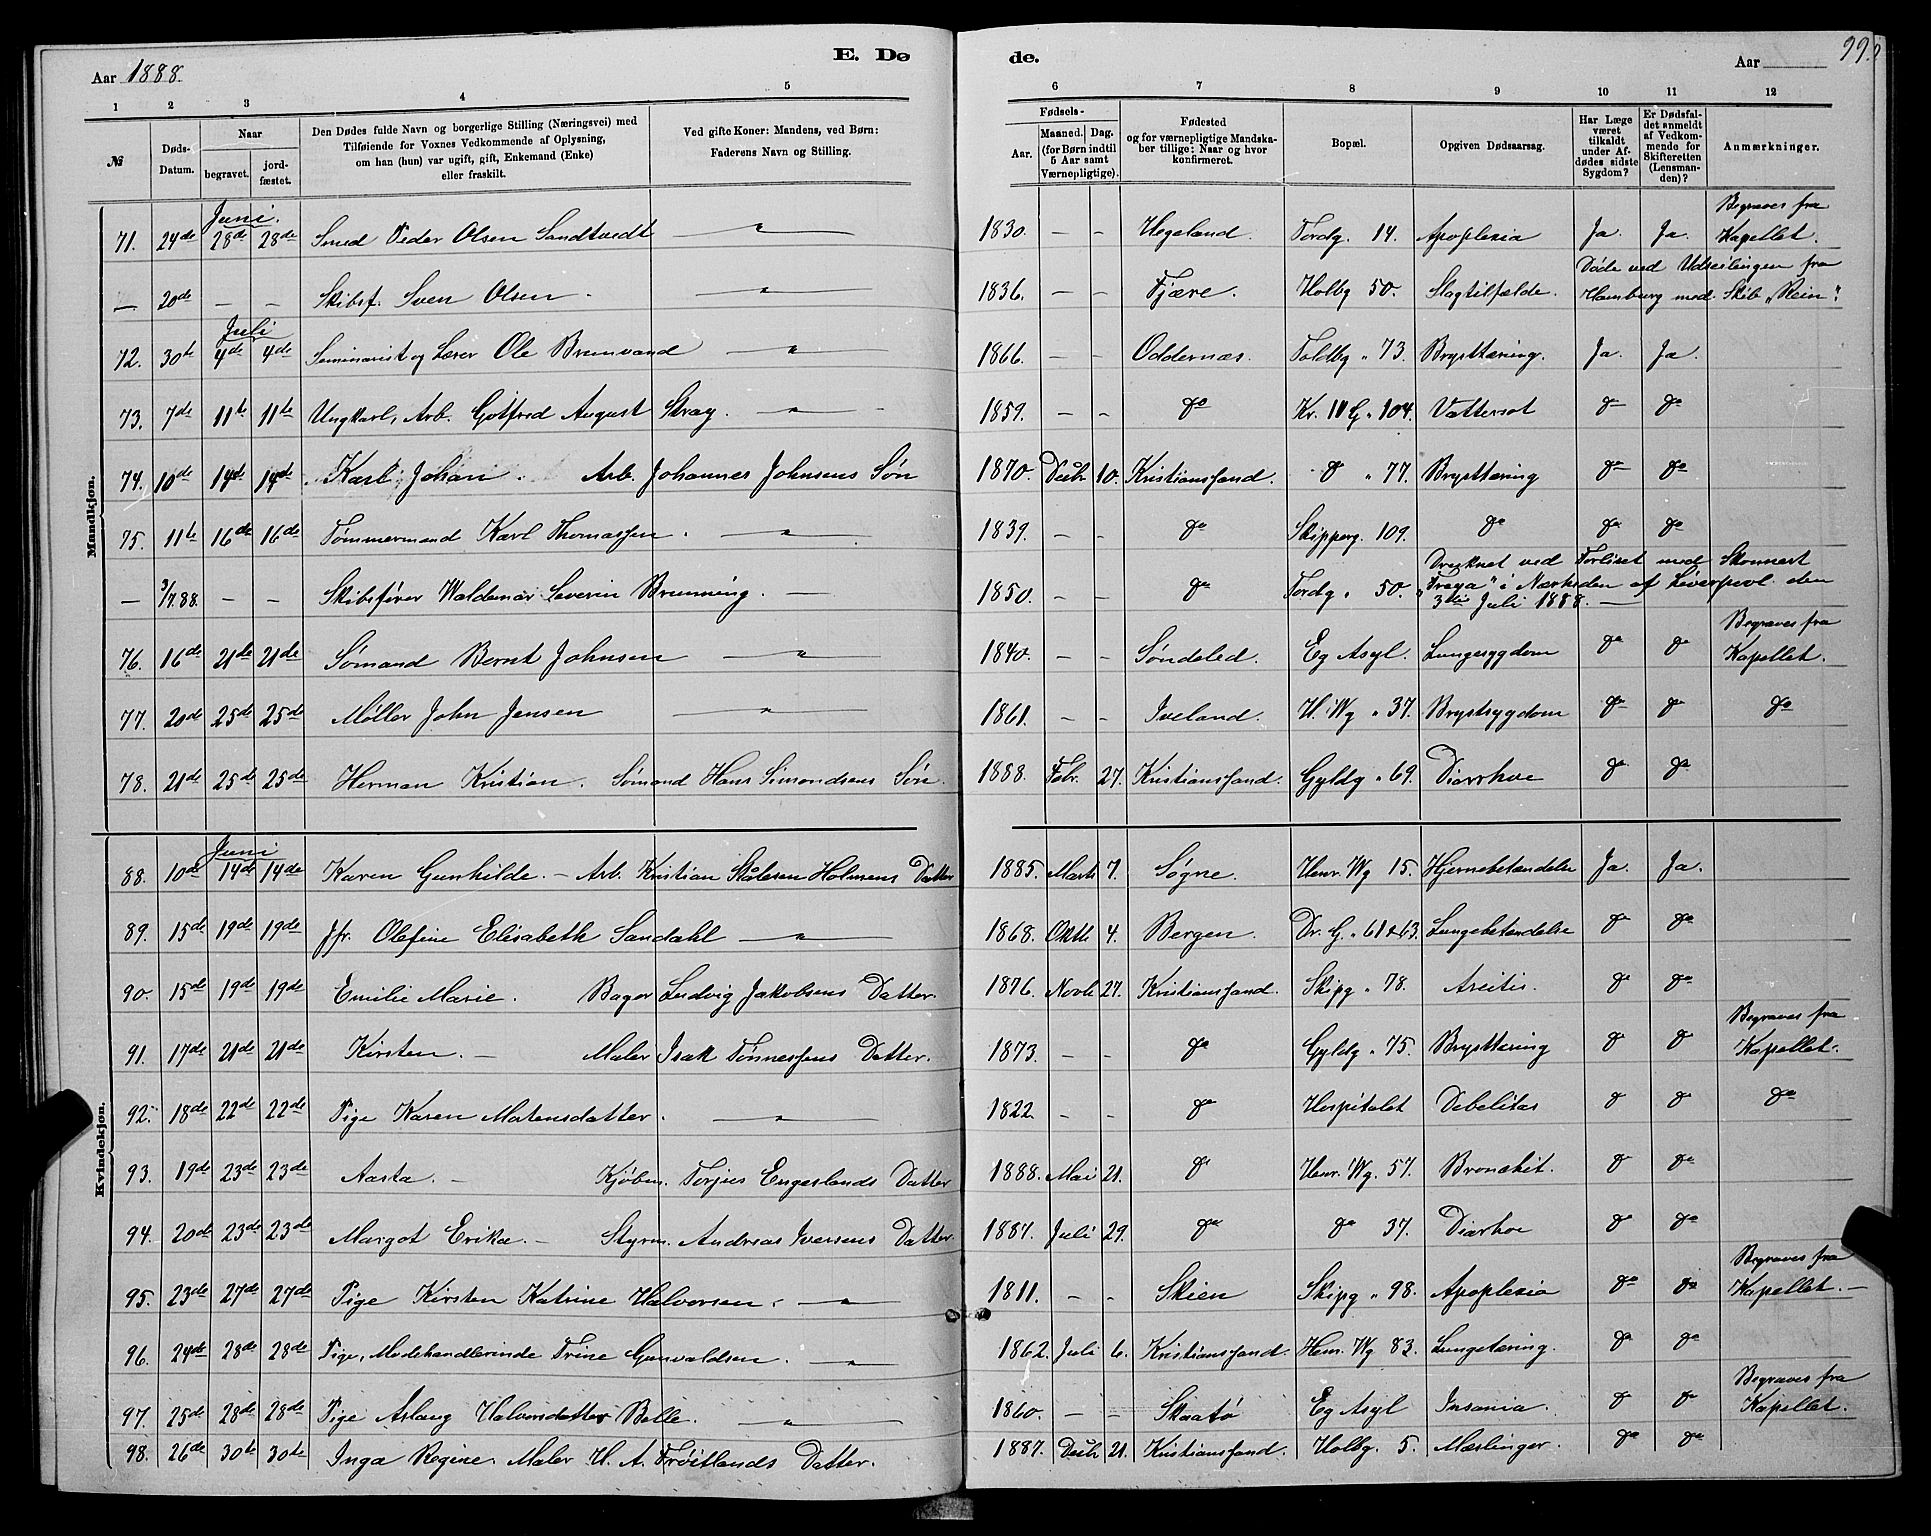 Aar 1888.
E. Dø
de.
Aar
99.
1 2 3 4 5 6 7 8 9 10 11 12
№
Døds-Datum.
Naar
begravet.
jordfæstet.
Den Dødes fulde Navn og borgerlige Stilling (Næringsvei) med
Tilføiende for Voxnes Vedkommende af Oplysning,
om han (hun) var ugift, gift, Enkemand (Enke)
eller fraskilt.
Ved gifte Koner: Mandens, ved Børn:
Faderens Navn og Stilling.
Fødsels-
Aar.
Maaned. Dag.
(for Børn indtil
5 Aar samt
Værnepligtige).
Fødested
og for værnepligtige Mandska-
ber tillige: Naar og hvor
konfirmeret.
Bopæl.
Opgiven Dødsaarsag.
Har Læge
været
tilkaldt
under Af-
dødes sidste
Sygdom?
Er Dødsfal-
det anmeldt
af Vedkom-
mende for
Skifteretten
(Lensman-
den)?
Anmærkninger.
Mandkjøn.
Juni.
71. 24de 28de 28de Smed Peder Olsen Sandtvedt " 1830. – – Hegeland. Tordg. 14. Apoplexia Ja. Ja. Begraves fra Kapellet.
— 20de – – Skibsf. Sven Olsen. " 1836. – – Fjære. Holbg 50. Slagtilfælde. Døde ved Udseilingen fra Hamburg med Skib „Rein".
Juli
72. 30te 4de 4de Seminarist og Lærer Ole Brunvand " 1866. – – Oddernæs. Toldbg " 73. Brysttæring. Ja. Ja.
73. 7de 11te 11te Ungkarl, Arb. Gotfred August Stray. " 1859. – – do Kr. IV G. " 104. Vattersot do do
74. 10de 14de 14de Karl Johan. Arb. Johannes Johnsens Søn 1870. Decbr 10. Kristianssand. do " 77. Brysttæring do do
75. 11te 16de 16de Tømmermand Karl Thomassen. " 1839. – – do Skipperg. 109. do do do
— 3/7.88. – – Skibsfører Waldemar Severin Brunning. — 1850. – – do Tordg. 50. Druknet ved Forliset med Skonnert „Freya" i Nærheden af Liverpool den 3die Juli 1888. —
76. 16de 21de 21de Sømand Bernt Johnsen " 1840. – – Søndeled. Eg Asyl. Lungesygdom do do Begraves fra Kapellet.
77. 20de 25de 25de Møller John Jensen " 1861. – – Iveland. H. Wg " 37. Brystsygdom do do do
78. 21de 25de 25de Herman Kristian. Sømand Hans Simondsens Søn. 1888. Febr. 27. Kristianssand. Gyldg " 69. Diarrhoe do do
Kvindekjøn.
Juni
88. 10de 14de 14de Karen Gunhilde. – Arb. Kristian Ståleson Holmens Datter 1885. Marts 7. Søgne. Henr. Wg 15. Hjernebetændelse Ja. Ja.
89. 15de 19de 19de Jfr. Olefine Elisabeth Sandahl " 1868. Oktb 4. Bergen. Dr. G. " 61 & 63. Lungebetændelse do do
90. 15de 19de 19de Emilie Marie. Bager Ludvig Jakobsens Datter. 1876. Novb 27. Kristianssand. Skipg " 78. do do
91. 17de 21de 21de Kirsten. – Maler Isak Tønnessens Datter. 1873. – – do Gyldg " 75. Brysttæring do do Begraves fra Kapellet.
92. 18de 22de 22de Pige Karen Mortensdatter. " 1822. – – do Hospitalet Debelitas do do do
93. 19de 23de 23de Aasta. – Kjøbm. Torjus Engeslands Datter 1888. Mai 21. do Henr. Wg. 57. Bronchit. do do
94. 20de 23de 23de Margot Erika. – Styrm. Andreas Iversens Datter. 1887. Juli 29. do do 37. Diarhoe do do
95. 23de 27de 27de Pige Kirsten Katrine Halvorsen. " 1811. – – Skien Skipg " 98. Apoplexia do do Begraves fra Kapellet. —
96. 24de 28de 28de Pige, Modehandlerinde Trine Gunvaldsen. " 1862. Juli 6. Kristianssand. Henr. Wg 83. Lungetæring. do do
97. 25de 28de 28de Pige Aslaug Halvorsdatter Belle. " 1860. – – Skaatø Eg Asyl Insania. do do Begraves fra Kapellet.
98. 26de 30te 30te Inga Regine. Maler H. A. Frøitlands Datter. 1887. Decbr 21. Kristianssand. Holbg. 5. Mæslinger. do do